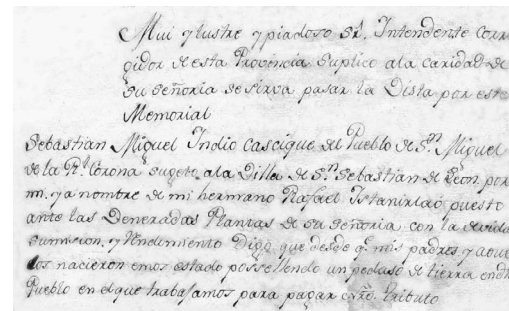 Mui ylustre ypiadoso Sr. Intendente Corr
gidor de esta Provincia Suplico ala caridad de
su señoria se sirva pasar la Vista por este
Memorial
Sebastian Miguel Indio Cascique del Pueblo de Sn. Miguel
de la Rl. Corona sugeto ala Villa de Sn. Sebastian de Leon por
mi. ya nombre de mi hermano Rafael Istanirlao puesto
ante las Veneradas Plantas de su señoria con la devida
sumision, y Rendimiento Digo que desde q. mis padres, y avue
los nacieron emos estado possellendo un pedaso de tierra endho
Pueblo en el que trabajamos para pagar el rro. tributo